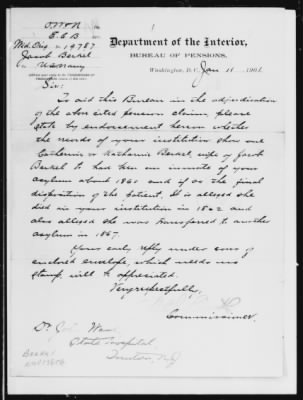 E. E. B.
Department of the Interior,
BUREAU OF PENSIONS,
Washington, D. C., Jan 11 1901.
Md. Orig. 19787
Jacob Beckel
U.S. Navy
Sir:
To aid this Bureau in the adjudication
of the above cited pension claim, please
state by endorsement hereon whether
the records of your institution show one
Catherine or Katharine Beckel, wife of Jacob
Beckel to had been an inmate of your
asylum about 1860 and if so the final
disposition of the patient. It is alleged she
died in your institution in 1862 and
also alleged she was transferred to another
asylum in 1867.
Your early reply under cover of
enclosed envelope, which needs no
stamp, will be appreciated.
Very respectfully,
Commissioner.
Dr. Ward
State Hospital
Trenton, N.J.